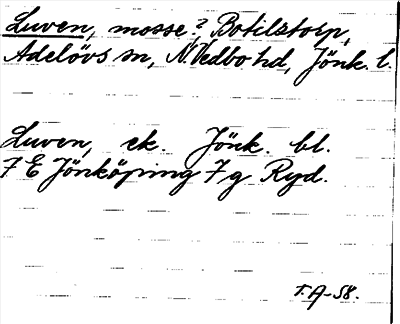 Luven, mosse? Botilstorp,
Adelövs sn, N. Vedbo hd, Jönk. l.
Luven, ek. Jönk. bl.
7 E Jönköping 7 g Ryd.
T. A-58.